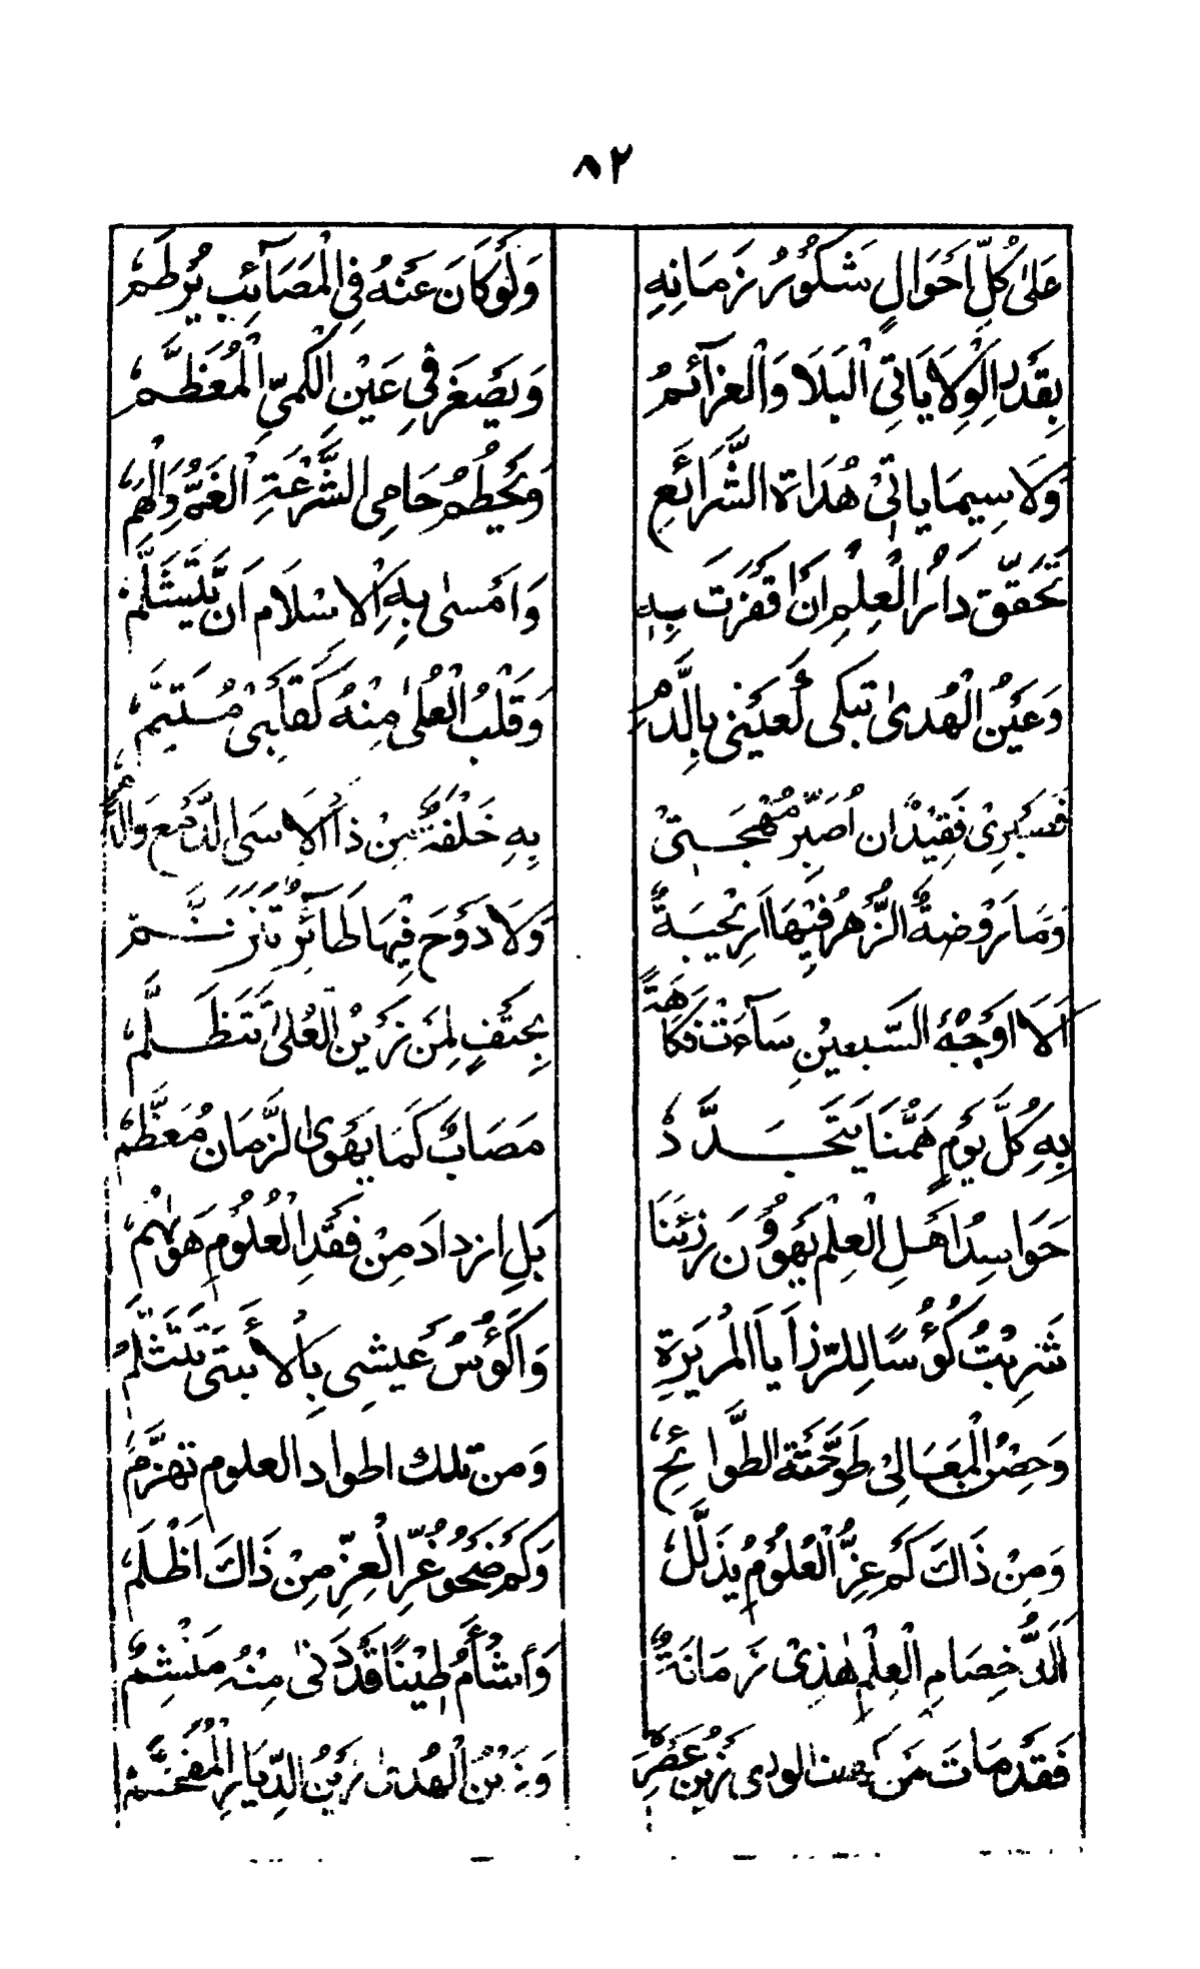 ٨٢
عَلىٰ كُلِّ اَحْوَالٍ شَكُوْرُ زَمَانِهٖ وَلَوْ كَانَ عَنْهُ فِي الْمَصَآئِبِ يُرْطَمُ
بِقَدْرِ الْوِلَا يَاتِى الْبَلَا وَالْعَزَآئِمُ وَيَصْغَرُ فِي عَيْنِ الْكَمِيِّ الْمُعَظَّمُ
وَلَا سِيمَا يَاتِىْ هُدَاةَ الشَّرَائِعِ وَيَحْطِمُ حَامِى الشَّرْعَةِ الْغَمُّ وَالْهَمُ
تَحَقَّقَ دَارُ الْعِلْمِ اَنْ اَقْفَرَتْ بِهٖ وَاَمْسىٰ بِهِ الْاِسْلَامُ اَنْ يَّتَثَلَّمُ
وَعَيْنُ الْهُدىٰ تَبْكى لَعَيْنِى بِالدَّمِ وَقَلْبُ الْعُلىٰ مِنْهُ كَقَلْبِىْ مُتَيَّمُ
فَسِيْرِىْ فَقِيْدًا اَنْ اُصَبِّرَ مُهْجَتِىْ بِهِ خَلْفَةٌ مِنْ ذَا الْاَسَى الدَّمْعُ
وَمَا رَوْضَةُ الزُّهْرِ فِيْهَا اَرِيْحِيَةٌ وَلَا دَوْحَ فِيْهَا طَائِرٌ يَتَرَنَّمُ
اَلَا اَوْجُهُ السَّبْعِيْنِ سَآءَتْ فَكَاهَةً بِحَتْفٍ لِمَنْ زَيْنُ الْعُلىٰ تَتَظَلَّمُ
بِهِ كُلَّ يَوْمٍ هَمُّنَا يَتَجَدَّدُ مَصَابٌ كَمَا يَهْوى الزَّمَانُ مُعَظَّمُ
حَوَاسِدُ اَهْلِ الْعِلْمِ يَهْوُوْنَ رُزْئَنَا بَلِ ازْدَادَ مِنْ فَقْدِ الْعُلُوْمِ هَوٰىهُمُ
شَرِبْتُ كُؤُسًا لِلرَّزَايَا الْمَرِيَرةِ وَاَكْؤُسُ عَيْشِى بِالْاَسٰى تَتَثَلَّمُ
وَحِصْنُ الْمَعَالِىْ طَوَّحَتْهُ الطَّوَائِحُ وَمن تلك اطواد العلوم تهزَّمُ
وَمِنْ ذَاكَ كَمْ عِزُّ الْعُلُوْمِ يُذَلَّلُ وَكَمْ ضَحْوُ غُرِّ الْعِزِّ مِنْ ذَاكَ اَظْلَمُ
اَلَدُّ خِصَامِ الْعِلْمِ هٰذِىْ زَمَانَةٌ وَاَشْأَمُ طِيْنًا قَدْ دَنىٰ مِنْهُ مَنْشِمُ
فَقَدْ مَاتَ مَنْ الورى زَيْنُ عَصْرِهٖ وَزَيْنُ الْهُدىٰ زَيْنُ الدِّيَارِ الْمُفَخَّمُ